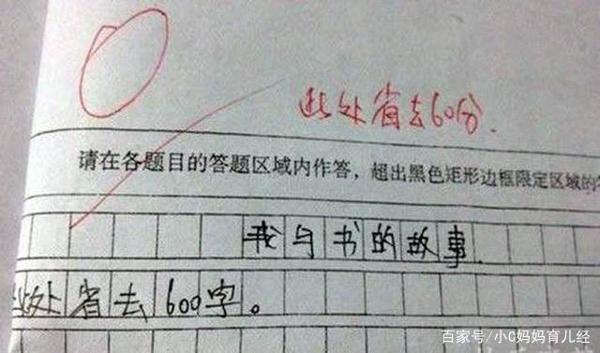 此处省去60分.
请在各题目的答题区域内作答，超出黑色矩形边框限定区域的答
我与书的故事.
此处省去600字。
百家号/小C妈妈育儿经